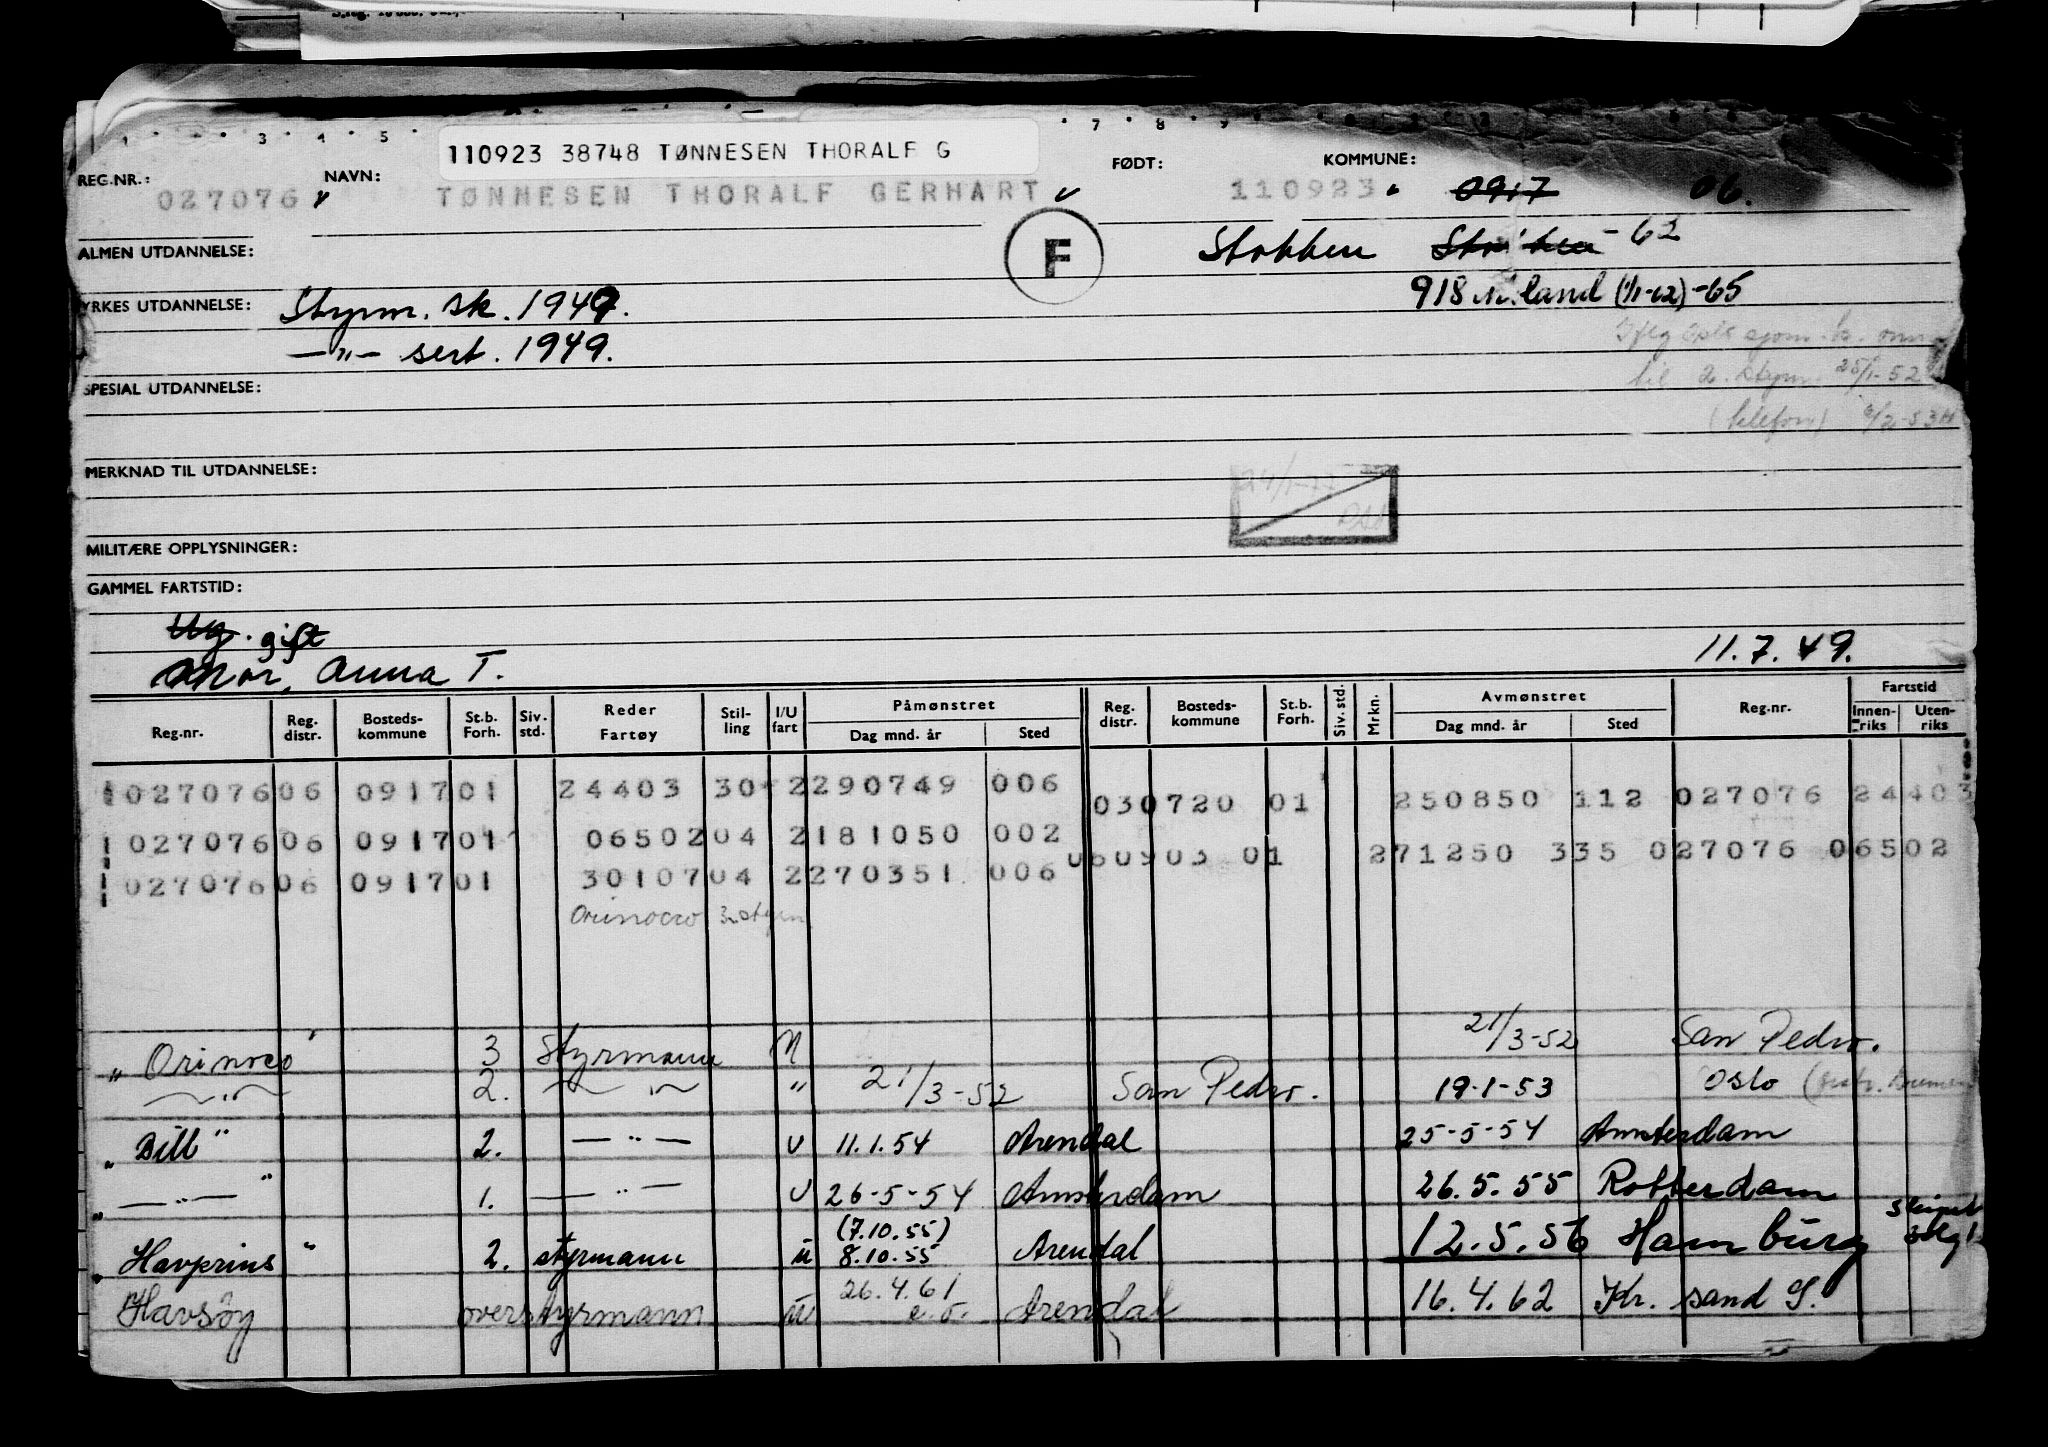 110923 38748 TØNNESEN THORALF G
REG.NR.: 027076 NAVN: TØNNESEN THORALF GERHART FØDT: 110923 KOMMUNE: 0917 06.
ALMEN UTDANNELSE: F Stokken - 62
918 M.land (1/1-62) -65
YRKES UTDANNELSE: Styrm. sk. 1949.
—"— sert. 1949.
til 2. styrm. 25/1-52
(telefon)
SPESIAL UTDANNELSE:
MERKNAD TIL UTDANNELSE:
MILITÆRE OPPLYSNINGER:
GAMMEL FARTSTID:
Ug. gift
Mor, Anna T. 11.7.49.
Reg.nr. Reg. distr. Bosteds-kommune St.b. Forh. Siv. std. Reder Fartøy Stil-ling I/U fart Påmønstret Dag mnd. år Sted Reg. distr. Bosteds-kommune St.b. Forh. Siv. std. Mrkn. Avmønstret Dag mnd. år Sted Reg.nr. Fartstid Innen-riks Uten-riks
027076 06 0917 01 24403 30 2 290749 006 030720 01 250850 112 027076 24403
027076 06 0917 01 06502 04 2 181050 002 060903 01 271250 335 027076 06502
027076 06 0917 01 30107 04 2 270351 006
Orinoco 3. styrm
" Orinoco " 3 styrmann U 21/3-52 San Pedro.
—"— 2. —"— " 21/3-52 San Pedro. 19-1-53 Oslo
" Bill " 2. —"— U 11.1.54 Arendal 25-5-54 Amsterdam
" —"— " 1. —"— U 26-5-54 Amsterdam 26.5.55 Rotterdam
" Havprins " 2. styrmann u (7.10.55) 8.10.55 Arendal 12.5.56 Hamburg
Havsöy overstyrmann u 26.4.61 Arendal 16.4.62 Kr. sand S.